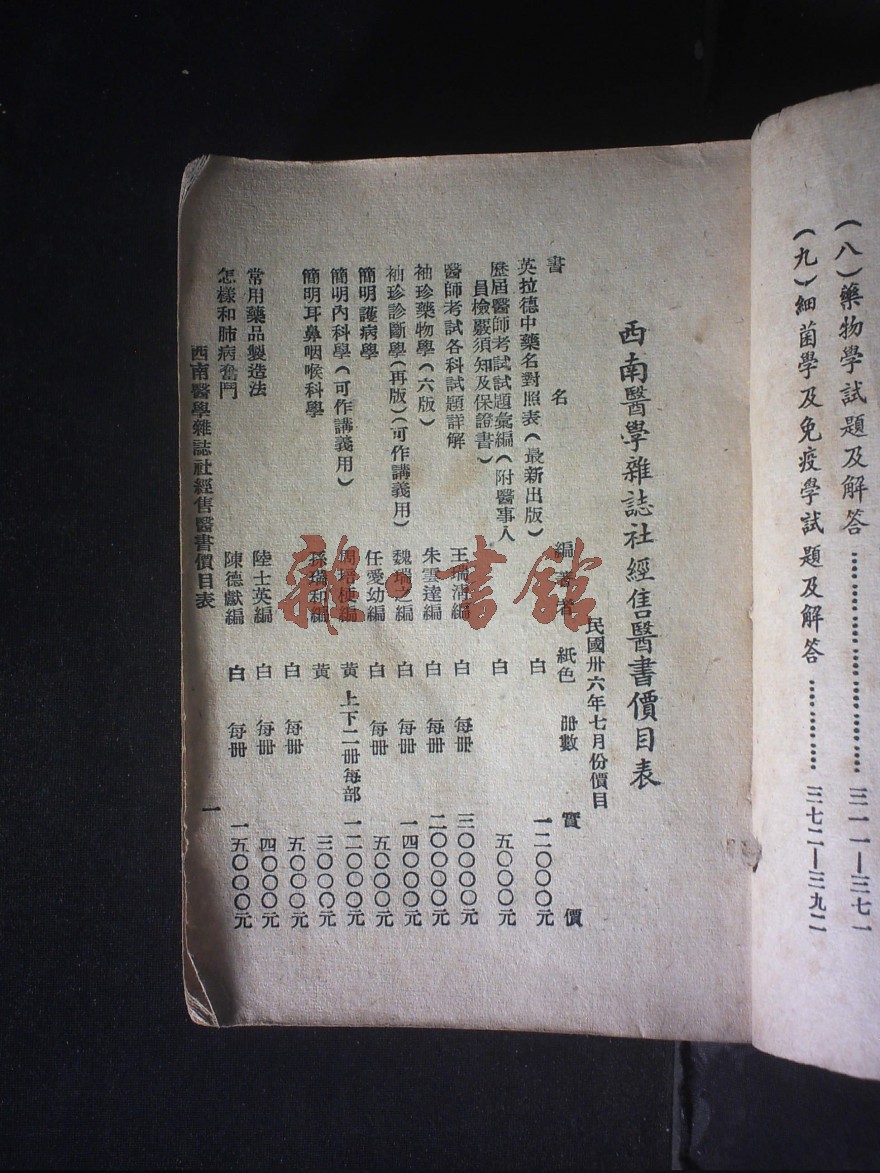 (八)藥物學試題及解答……………………三一一—三七一
(九)細菌學及免疫學試題及解答…………三七二—三九二
西南醫學雜誌社經售醫書價目表
民國卅六年七月份價目
書名 編著者 紙色 冊數 實價
英拉德中藥名對照表(最新出版) 白 一二〇〇〇元
歷屆醫師考試試題彙編(附醫事人 白 五〇〇〇元
員檢覈須知及保證書)
醫師考試各科試題詳解 王瑞清編 白 每冊 三〇〇〇〇元
袖珍藥物學(六版) 朱雲達編 白 每冊 二〇〇〇〇元
袖珍診斷學(再版)(可作講義用) 魏瑞之編 白 每冊 一四〇〇〇元
簡明護病學 任愛幼編 白 每冊 五〇〇〇元
簡明內科學(可作講義用) 編 黃 上下二冊每部 一二〇〇〇元
簡明耳鼻咽喉科學 孫瑞和編 黃 三〇〇〇元
白 每冊 五〇〇〇元
常用藥品製造法 陸士英編 白 每冊 四〇〇〇元
怎樣和肺病奮鬥 陳德獻編 白 每冊 一五〇〇〇元
西南醫學雜誌社經售醫書價目表 一
雜·書館